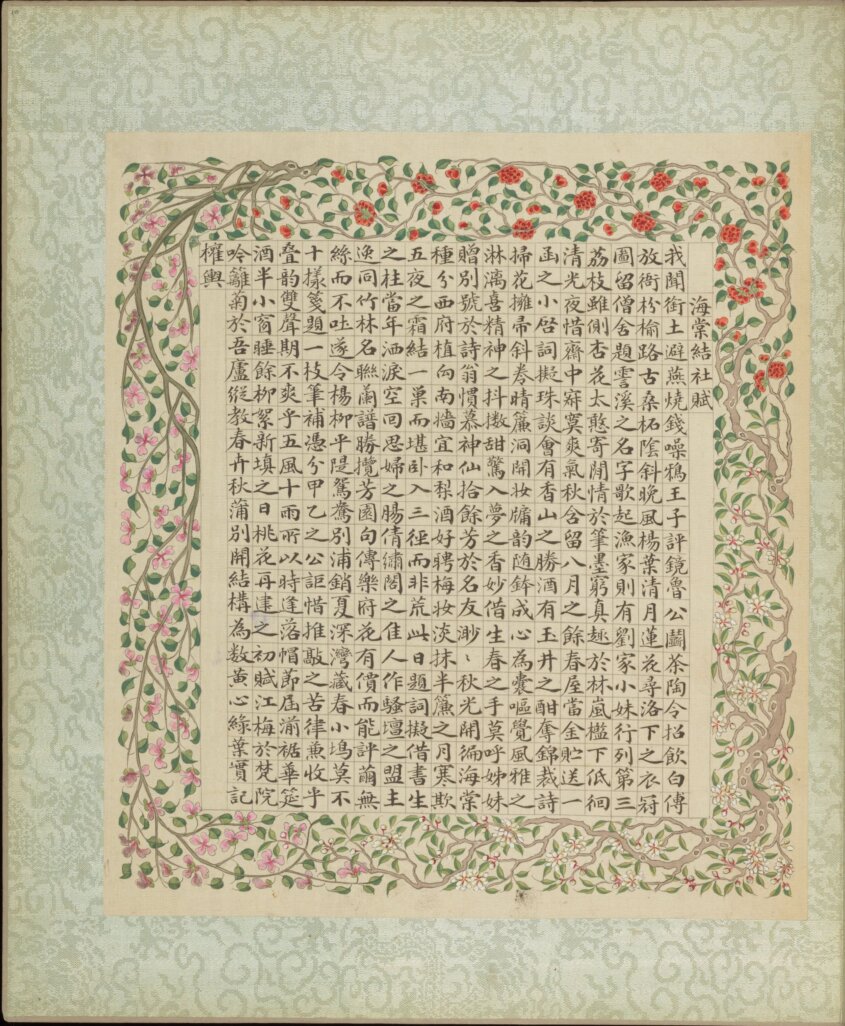 海棠結社賦
我聞銜土避燕燒錢噪鴉王子評鏡魯公鬭茶陶令招飲白傅
放衙枌榆路古桑柘陰斜晚風楊葉清月蓮花尋洛下之衣冠
圖留僧舍題霅溪之名字歌起漁家則有劉家小妹行列第三
荔枝雖側杏花太憨寄閒情於筆墨窮真趣於林嵐檻下低徊
清光夜惜齋中寂寞爽氣秋含留八月之餘春屋當金貯送一
函之小啓詞擬珠談會有香山之勝酒有玉井之酣奪錦裁詩
掃花擁帚斜卷晴簾洞開妝牖韵隨鉢成心為囊嘔覺風雅之
淋漓喜精神之抖擻甜驚入夢之香妙借生春之手莫呼姊妹
贈別號於詩翁慣慕神仙拾餘芳於名友渺〻秋光開徧海棠
種分西府植向南墻宜和梨酒好聘梅妝淡抹半簾之月寒欺
五夜之霜結一巢而堪卧入三徑而非荒此日題詞擬借書生
之柱當年洒淚空回思婦之腸倩繡閣之佳人作騷壇之盟主
逸同竹林名聯蘭譜勝攬芳園句傳樂府花有償而能評繭無
絲而不吐遂令楊柳平隄鴛鴦別浦銷夏深灣藏春小塢莫不
十樣箋題一枝筆補憑分甲乙之公詎惜推敲之苦律兼收乎
疊韵雙聲期不爽乎五風十雨所以時逢落帽節屆湔裙華筵
酒半小窗睡餘柳絮新填之日桃花再建之初賦江梅於梵院
吟籬菊於吾廬縱教春卉秋蒲別開結構為數黃心綠葉實記
權輿